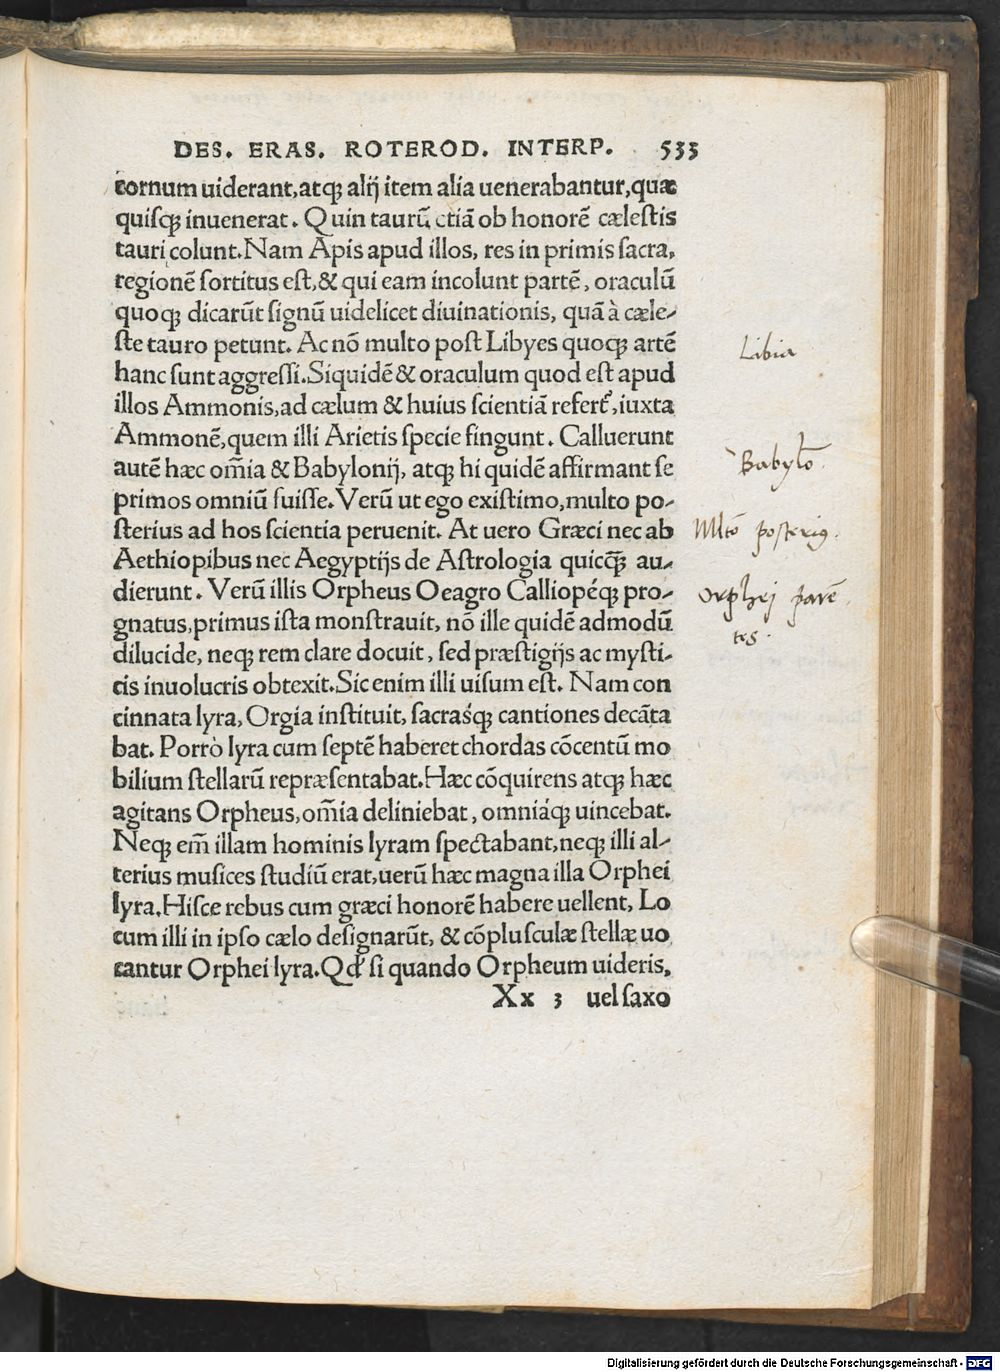 DES. ERAS. ROTEROD. INTERP. 533
cornum uiderant, atq; alij item alia uenerabantur, quæ
quiſq; inuenerat. Quin taurũ etiã ob honorẽ cæleſtis
tauri colunt. Nam Apis apud illos, res in primis ſacra,
regionẽ ſortitus eſt, & qui eam incolunt partẽ, oraculũ
quoq; dicarũt ſignũ uidelicet diuinationis, quã à cæle-
ſte tauro petunt. Ac nõ multo poſt Libyes quoq; artẽ
hanc ſunt aggreſſi. Siquidẽ & oraculum quod eſt apud
illos Ammonis, ad cælum & huius ſcientiã refert᷑, iuxta
Ammonẽ, quem illi Arietis ſpecie fingunt. Calluerunt
autẽ hæc om̃ia & Babylonij, atq; hi quidẽ affirmant ſe
primos omniũ fuiſſe. Verũ ut ego exiſtimo, multo po-
ſterius ad hos ſcientia peruenit. At uero Græci nec ab
Aethiopibus nec Aegyptijs de Aſtrologia quicq̃; au-
dierunt. Verũ illis Orpheus Oeagro Calliopéq; pro-
gnatus, primus iſta monſtrauit, nõ ille quidẽ admodũ
dilucide, neq; rem clare docuit, ſed præſtigijs ac myſti-
cis inuolucris obtexit. Sic enim illi uiſum eſt. Nam con
cinnata lyra, Orgia inſtituit, ſacraśq; cantiones decãta
bat. Porrò lyra cum ſeptẽ haberet chordas cõcentũ mo
bilium ſtellarũ repræſentabat. Hæc cõquirens atq; hæc
agitans Orpheus, om̃ia deliniebat, omniáq; uincebat.
Neq; em̃ illam hominis lyram ſpectabant, neq; illi al-
terius muſices ſtudiũ erat, uerũ hæc magna illa Orphei
lyra. Hiſce rebus cum græci honorẽ habere uellent, Lo
cum illi in ipſo cælo deſignarũt, & cõpluſculæ ſtellæ uo
cantur Orphei lyra. Qd̕ ſi quando Orpheum uideris,
Xx 3 uel ſaxo
Libia
Babylõ.
Mltõ poſterig.
Orphej parẽ
tes.
Digitalisierung gefördert durch die Deutsche Forschungsgemeinschaft - DFG